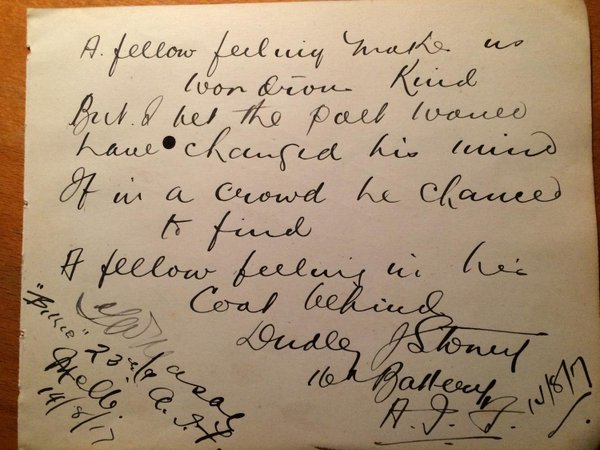 A fellow feeling makes us
wondrous Kind
But I bet the poet would
have changed his mind
If in a crowd he chanced
to find
A fellow feeling in his
Coat behind
Dudley J Stoney
16th Battery
A. I. F. 14/8/17
"Billie"
23rd A.I.F.
Melb.
14/8/17